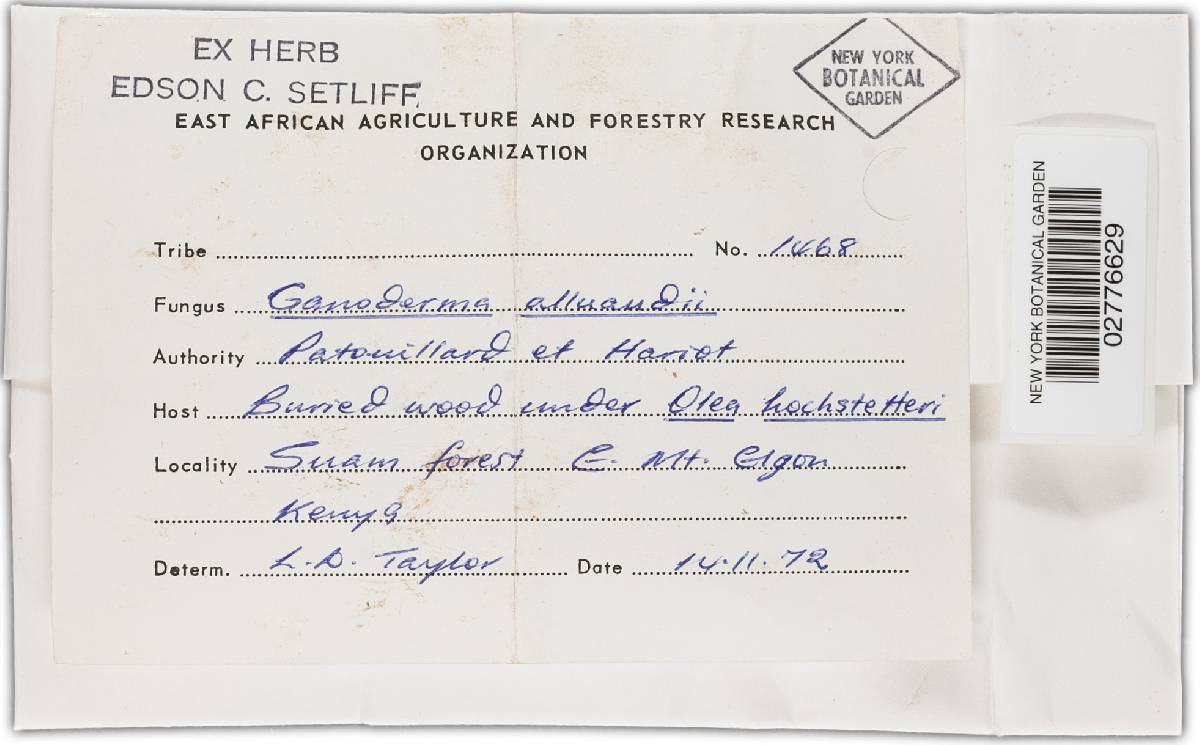 EX HERB
EDSON C. SETLIFF
NEW YORK
BOTANICAL
GARDEN
EAST AFRICAN AGRICULTURE AND FORESTRY RESEARCH
ORGANIZATION
Tribe No. 1468
Fungus Ganoderma alluaudii
Authority Patouillard et Hariot
Host Buried wood under Olea hochstetteri
Locality Suam forest E. Mt. Elgon
Kenya
Determ. L.D. Taylor Date 14.11.72
NEW YORK BOTANICAL GARDEN
02776629